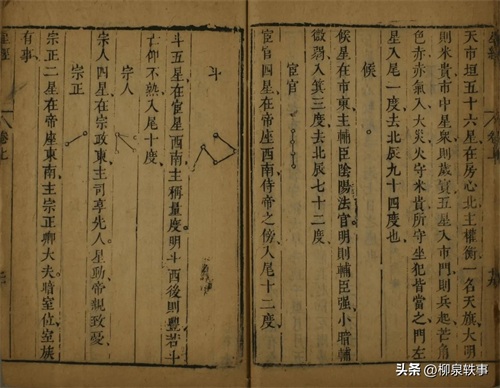 天市垣五十六星在房心北主權衡一名天旗大明
則米貴市中星衆則歲實五星入市門則兵起芒角
色赤赤氣入大災火守米貴所守坐犯皆當之門左
星入尾一度去北辰九十四度也
候
候星在市東主輔臣陰陽法官明則輔臣强小暗輔
微弱入箕三度去北辰七十二度
宦官
宦官四星在帝座西南侍帝之傍入尾十二度
斗
斗五星在宦星西南主稱量度明斗西後則豐若斗
仰不熟入尾十度
宗人
宗人四星在宗政東主司享先人星動帝親致憂
宗正
宗正二星在帝座東南主宗正卿大夫暗室位室族
有事
卷上
頭条 @柳泉轶事